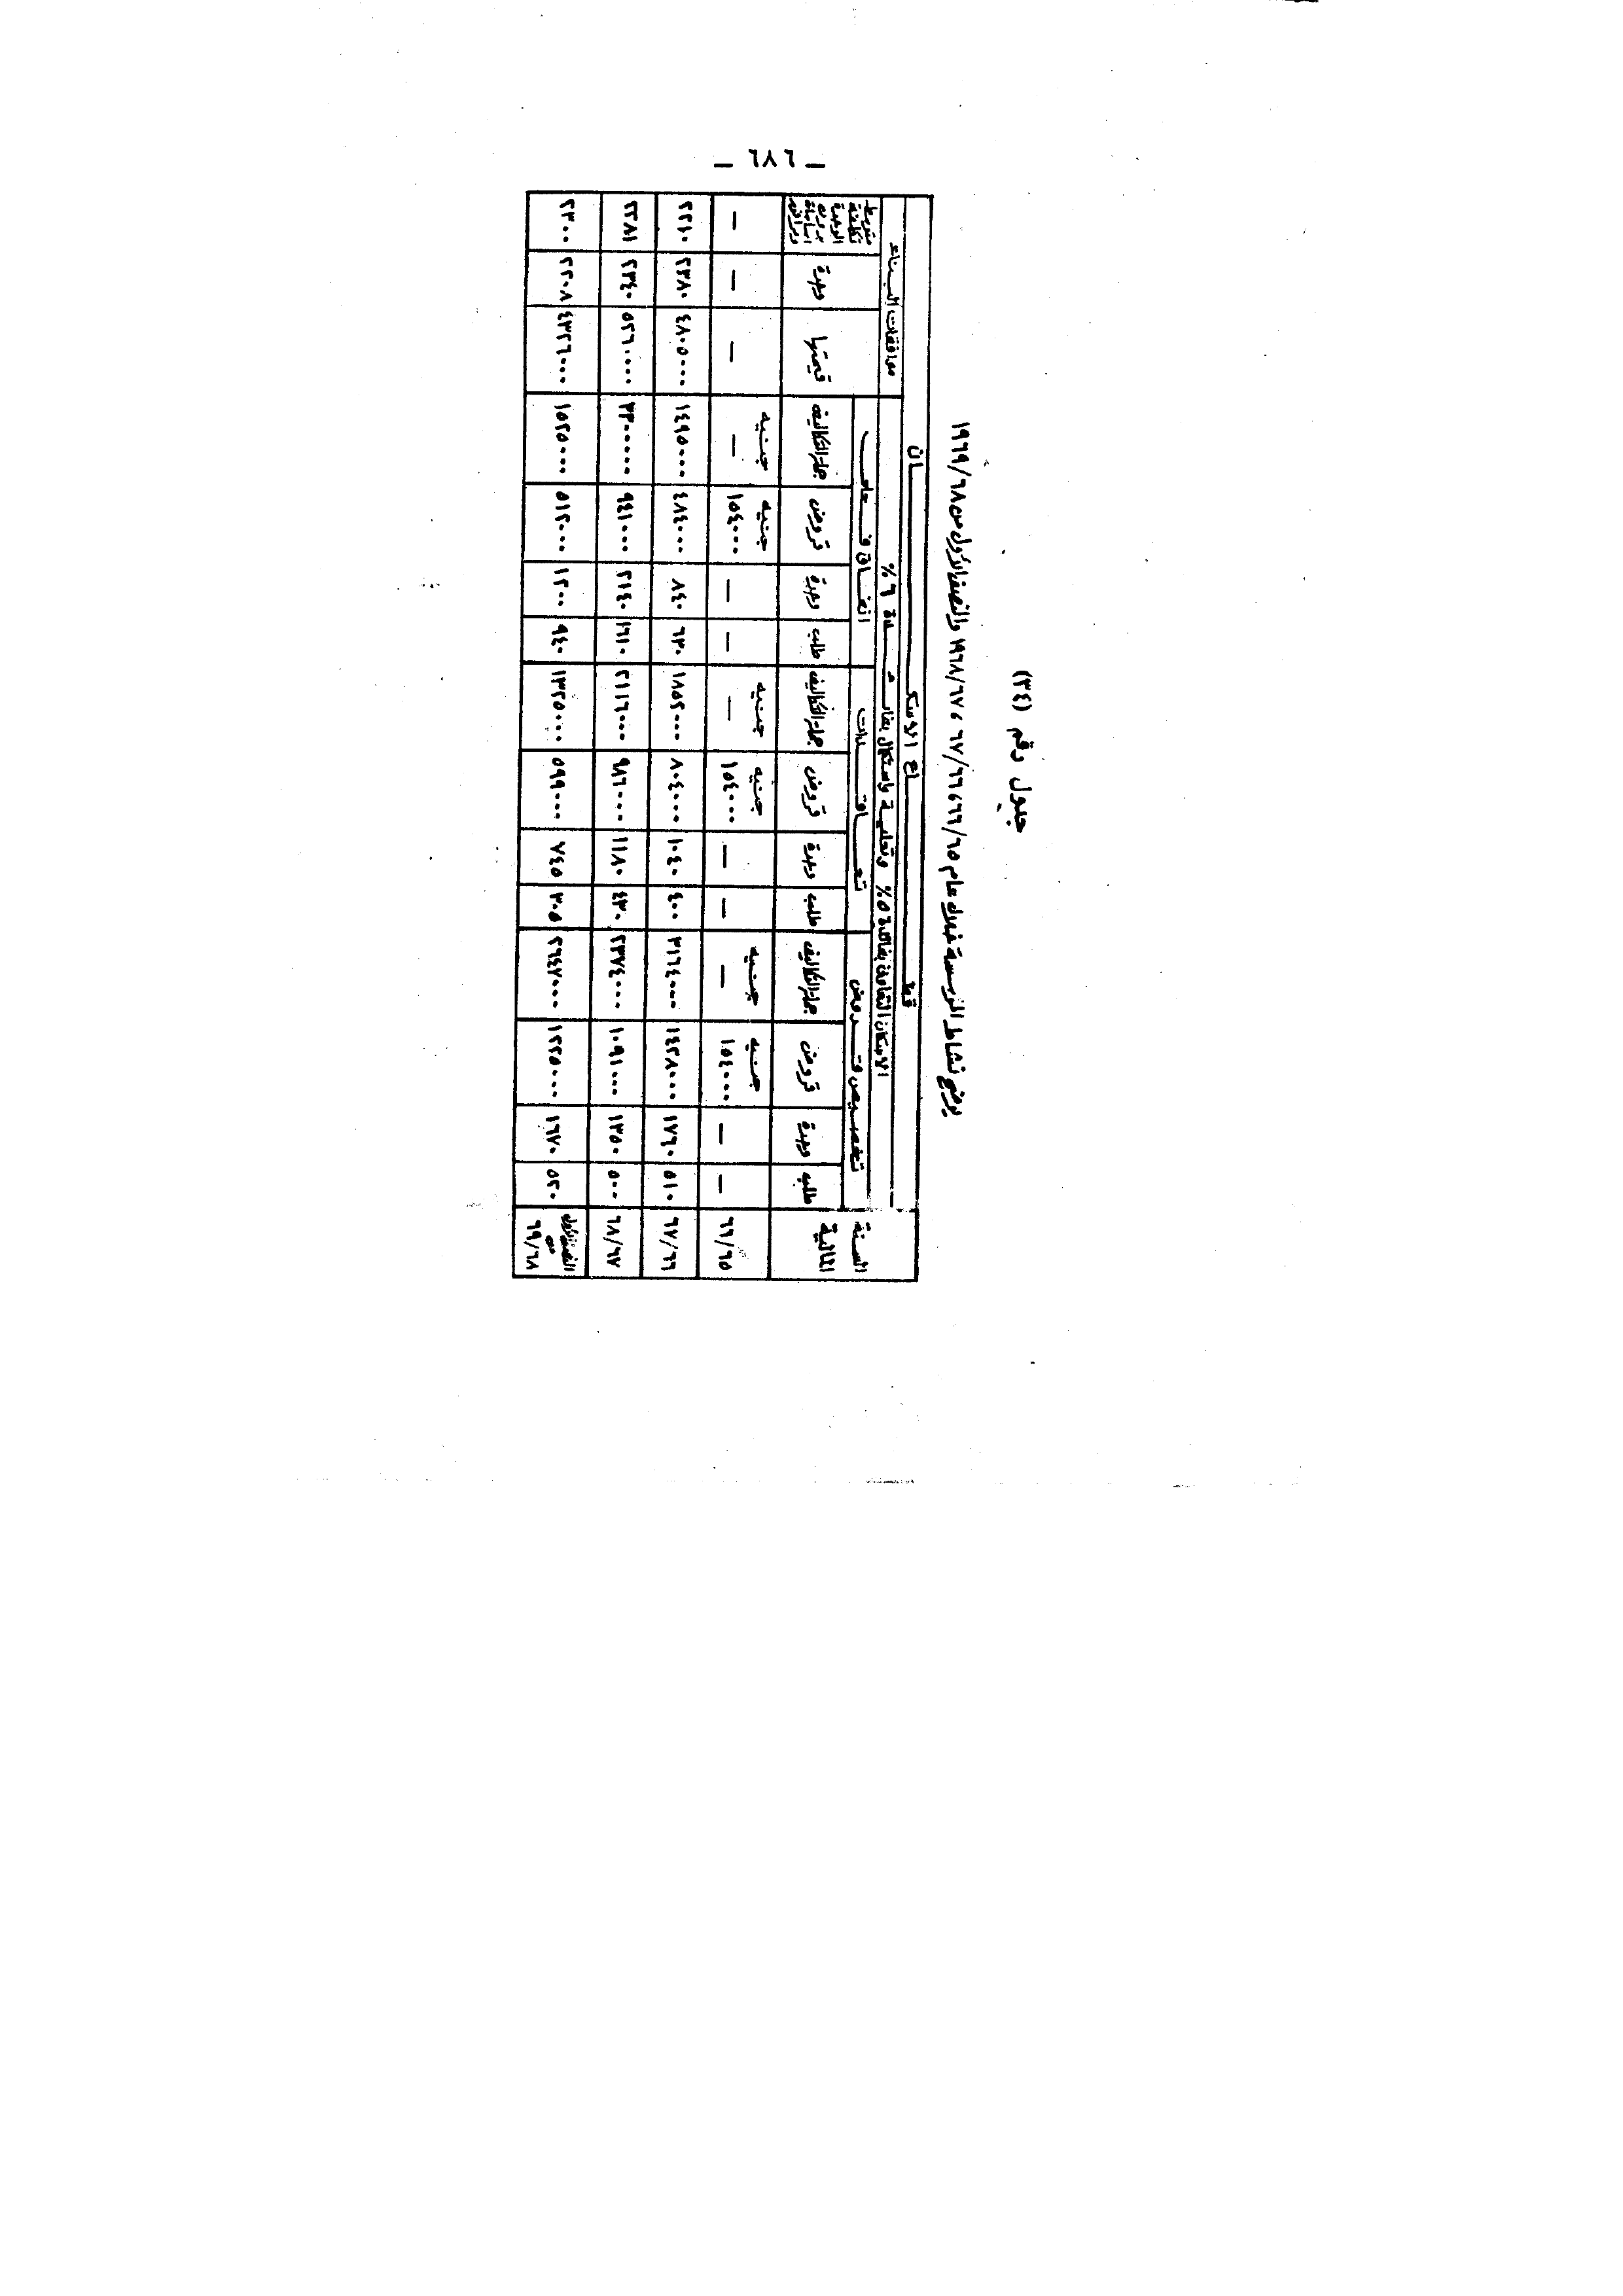 ـ ٦٨٦ ـ
جدول رقم (٣٤)
يوضح نشاط المؤسسة خلال عام ٦٦/٦٥، ٦٧/٦٦، ١٩٦٨/٦٧ والنصف الأول من ١٩٦٩/٦٨
السنة المالية
قطاع الاسكان
الاسكان التعاونى بفائدة ٥٪ وتعلية واستكمال بفائدة ٦٪
موافقات البناء
تخصيص قروض
تعاقدات
انفاق فعلى
طلب وحدة قروض جملة التكاليف طلب وحدة قروض جملة التكاليف طلب وحدة قروض جملة التكاليف قيمتها وحدة متوسط تكلفة الوحدة
جنيه جنيه جنيه جنيه جنيه جنيه
٦٦/٦٥ — — ١٥٤٠٠٠ — — — ١٥٤٠٠٠ — — — ١٥٤٠٠٠ — — — —
٦٧/٦٦ ٥١٠ ١٧٦٠ ١٤٢٨٠٠٠ ٣١٦٤٠٠٠ ٤٠٠ ١٠٤٠ ٨٠٤٠٠٠ ١٨٥٢٠٠٠ ٦٣٠ ٨٤٠ ٤٨٤٠٠٠ ١٤٩٥٠٠٠ ٤٨٠٥٠٠٠ ٢٣٨٠ ٢٢١٠
٦٨/٦٧ ٥٠٠ ١٣٥٠ ١٠٩١٠٠٠ ٢٣٧٤٠٠٠ ٤٣٠ ١١٨٠ ٩٨٦٠٠٠ ٢١١٦٠٠٠ ١٦١٠ ٢١٤٠ ٩٤١٠٠٠ ٥٢٦٠٠٠٠ ٢٣٤٠ ٢٢٨١
النصف الأول من ٦٩/٦٨ ٥٢٠ ١٦٧٠ ١٢٢٥٠٠٠ ٢٦٤٧٠٠٠ ٣٠٥ ٧٤٥ ٥٩٩٠٠٠ ١٣٢٥٠٠٠ ٩٤٠ ١٢٠٠ ٥١٢٠٠٠ ١٥٢٥٠٠٠ ٤٣٢٦٠٠٠ ٢٢٠٨ ٢٣٠٠